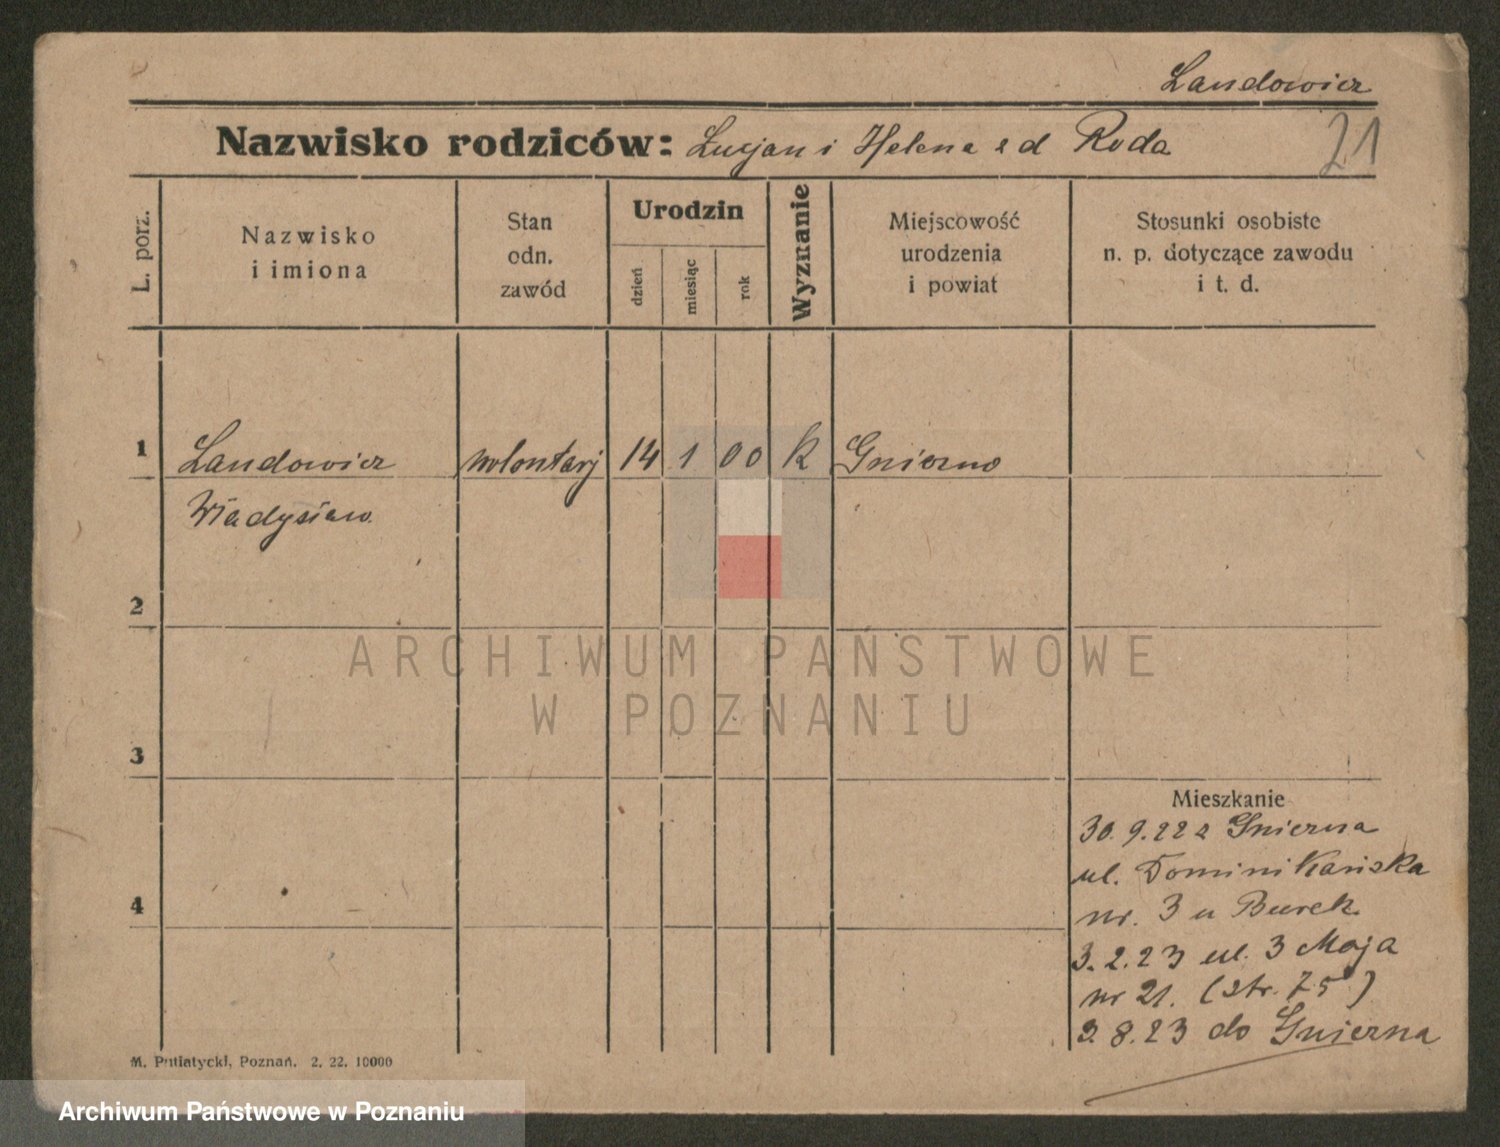 Landowicz
Nazwisko rodziców: Lucjan i Helena z d Roda
21
L. porz.
Nazwisko
i imiona
Stan
odn.
zawód
Urodzin
dzień
miesiąc
rok
Wyznanie
Miejscowość
urodzenia
i powiat
Stosunki osobiste
n. p. dotyczące zawodu
i t. d.
1 Landowicz wolontarj 14 1 00 k Gniezno
Władysław
2
3
4
Mieszkanie
30.9.22 z Gniezna
ul. Dominikańska
nr. 3 u Burek
3.2.23 ul. 3 Maja
nr 21. (str. 75)
3.8.23 do Gniezna
M. Putiatycki, Poznań. 2. 22. 10000
ARCHIWUM PAŃSTWOWE
W POZNANIU
Archiwum Państwowe w Poznaniu